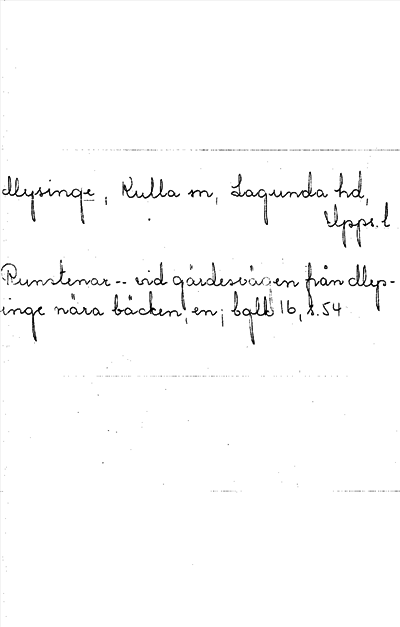 Mysinge, Kulla sn, Lagunda hd,
Upps. l
Runstenar -- vid gärdesvägen från Mys-
inge nära bäcken, en; bglk 16, s. 54